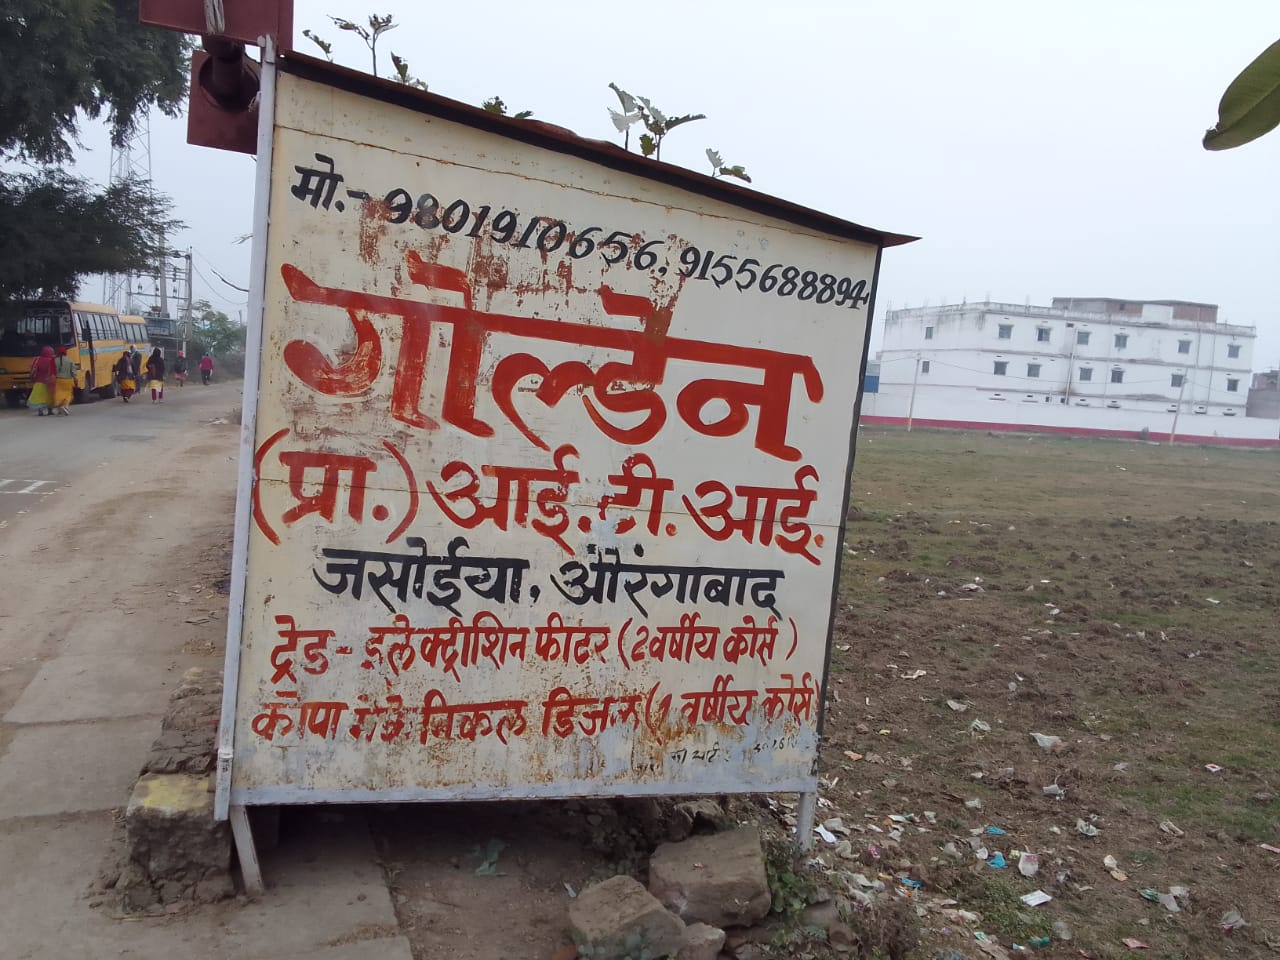 मो.- 9801910656, 9155688894
गोल्डेन
(प्रा.) आई.टी.आई.
जसोईया, औरंगाबाद
ट्रेड - इलेक्ट्रीशिन फीटर (2 वर्षीय कोर्स)
कोपा मेकेनिकल डिजल (1 वर्षीय कोर्स)